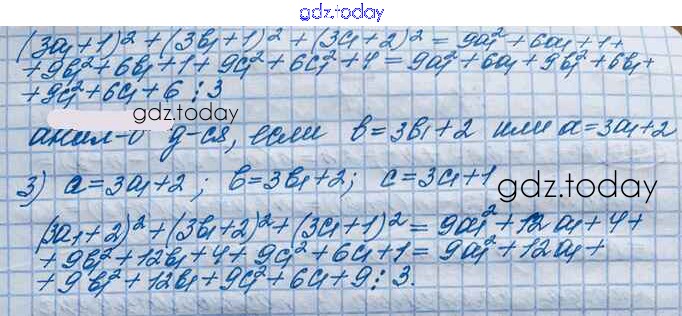 gdz.today
(3a₁+1)²+(3b₁+1)²+(3c₁+2)²=9a₁²+6a₁+1+
+9b₁²+6b₁+1+9c₁²+6c₁²+4=9a₁²+6a₁+9b₁²+6b₁+
+9c₁²+6c₁+6⋮3
gdz.today
анал-о д-ся, если b=3b₁+2 или a=3a₁+2
3) a=3a₁+2; b=3b₁+2; c=3c₁+1
gdz.today
(3a₁+2)²+(3b₁+2)²+(3c₁+1)²=9a₁²+12a₁+4+
+9b₁²+12b₁+4+9c₁²+6c₁+1=9a₁²+12a₁+
+9b₁²+12b₁+9c₁²+6c₁+9⋮3.